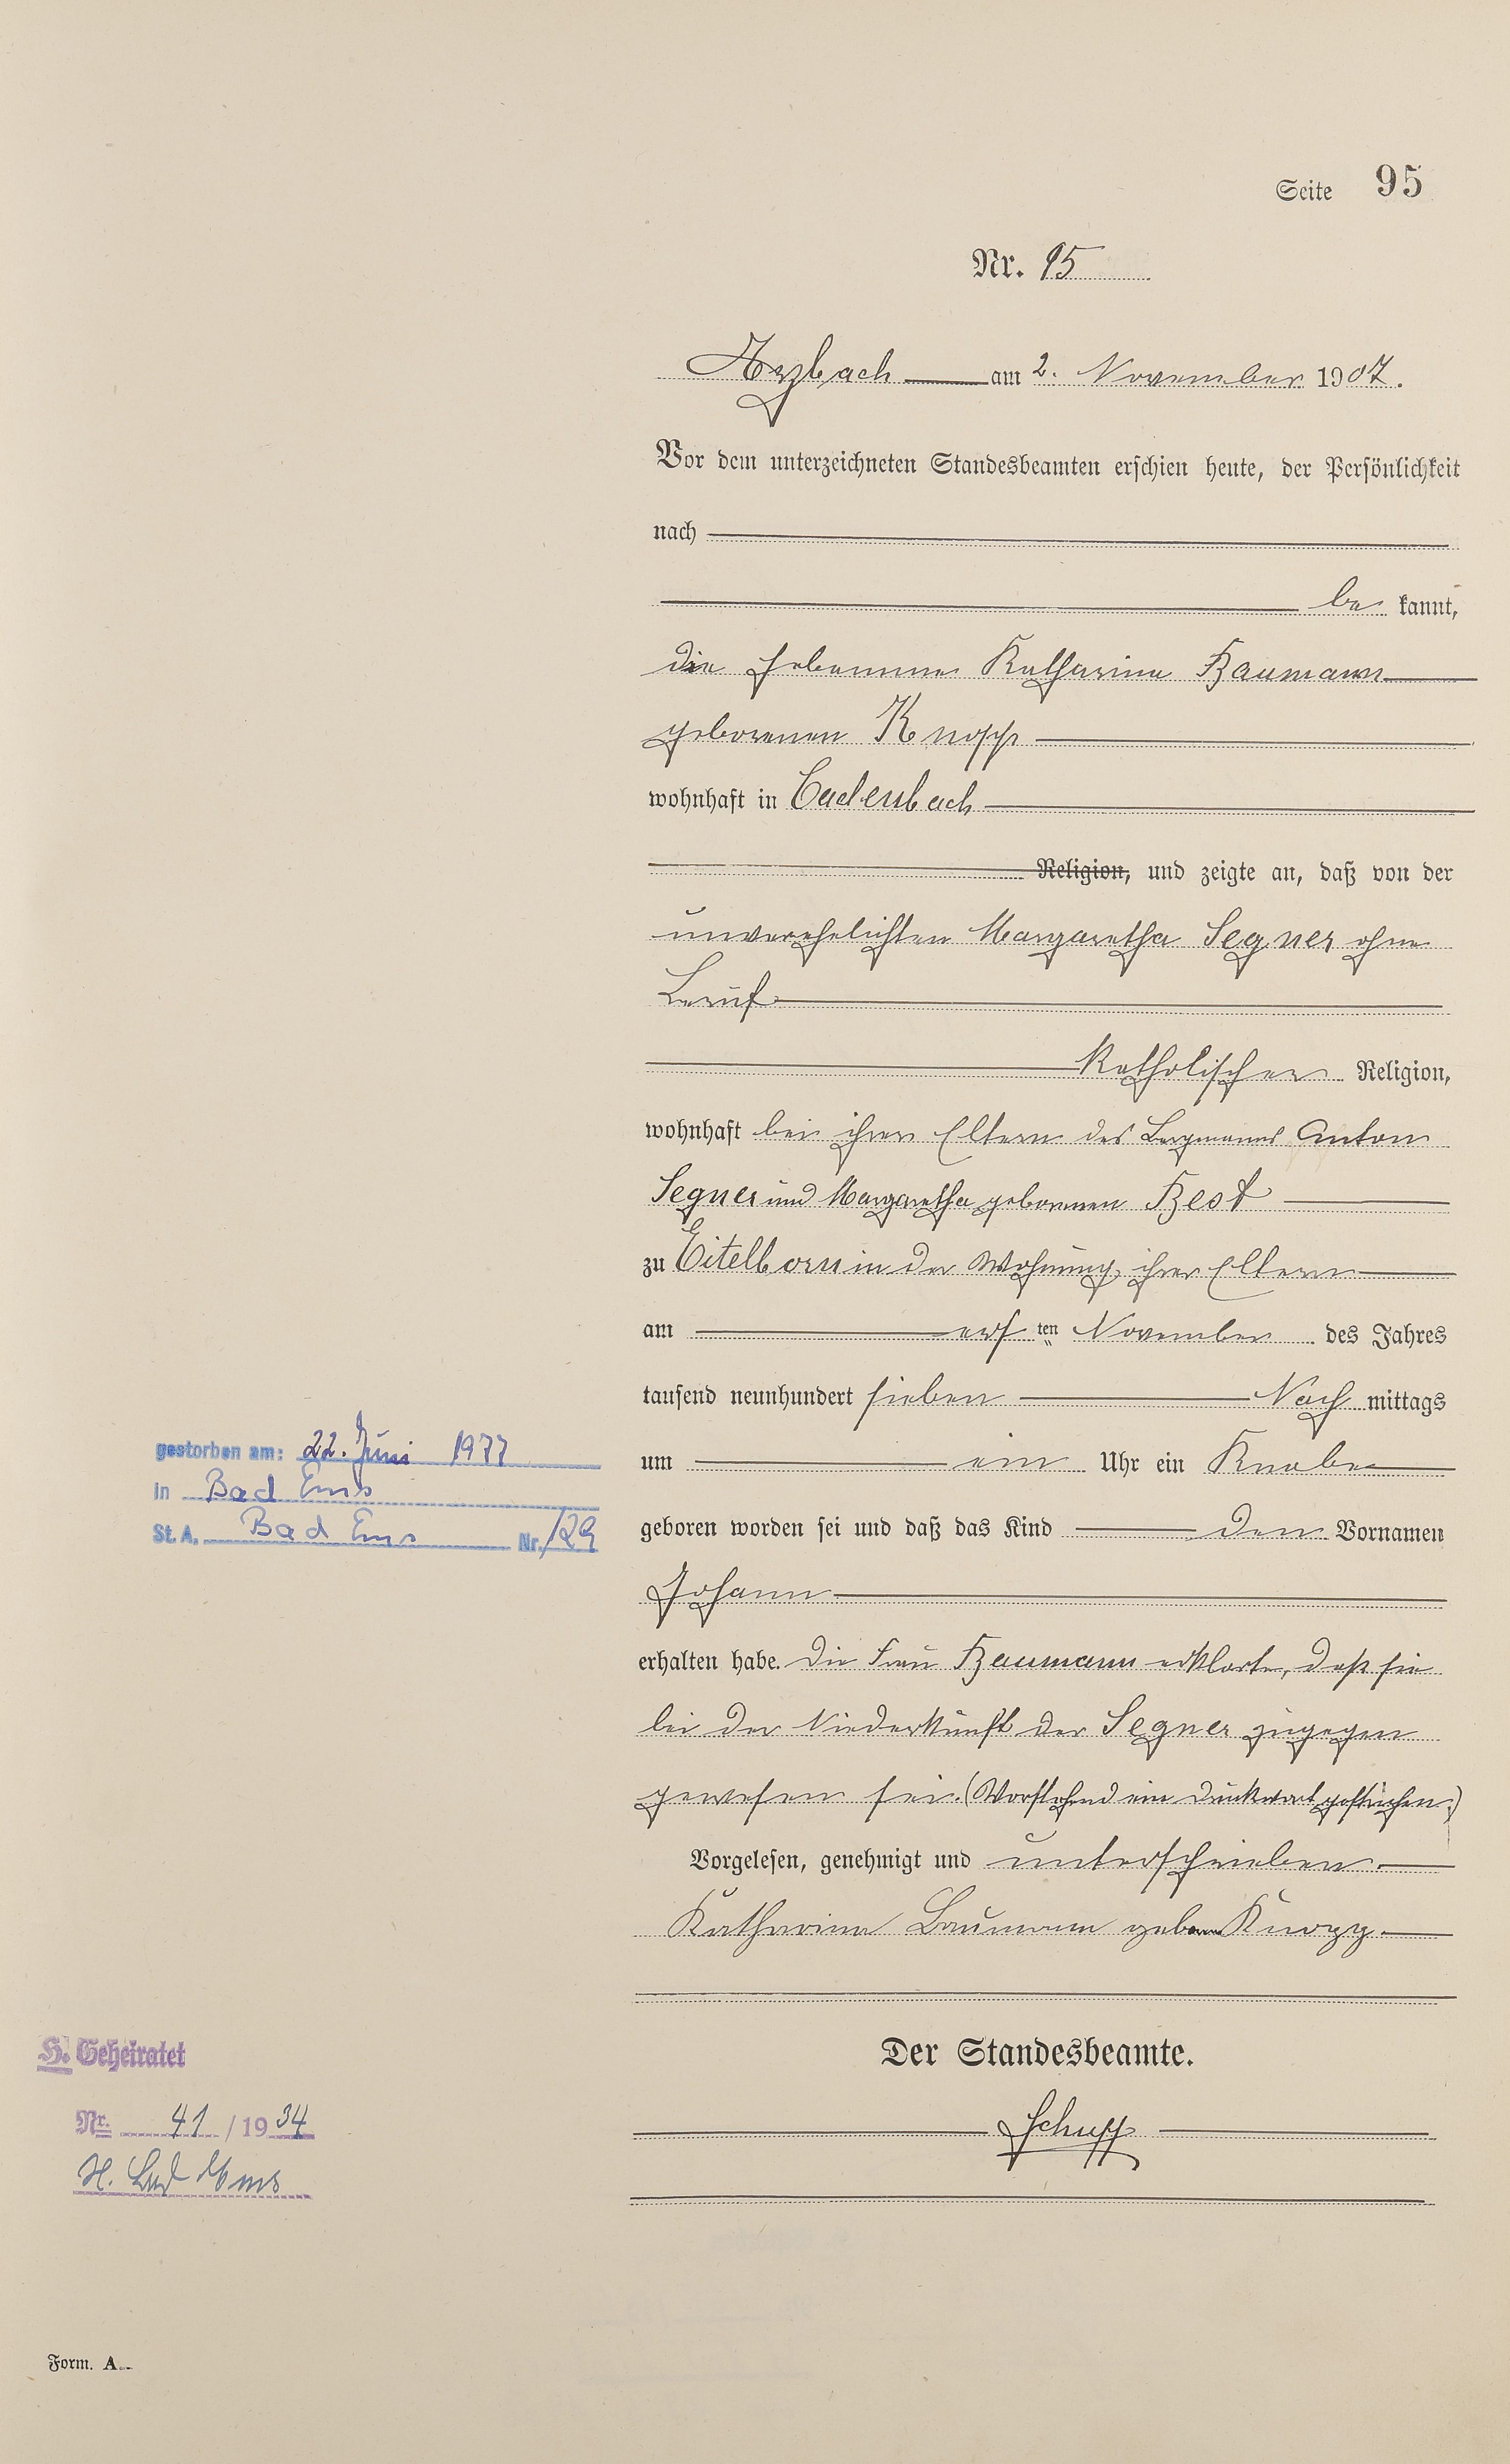 Seite 95
Nr. 95
Arzbach am 2. November 1907.
Vor dem unterzeichneten Standesbeamten erschien heute, der Persönlichkeit
nach
be kannt,
die Hebamme Katharina Baumann
geborenen Knopp
wohnhaft in Cadenbach
Religion, und zeigte an, daß von der
unverehelichten Margaretha Segner ohne
Beruf
katholischer Religion,
wohnhaft bei ihren Eltern des Bergmanns Anton
Segner und Margaretha geborenen Best
zu Eitelborn in der Wohnung ihrer Eltern
am ersten November des Jahres
tausend neunhundert sieben Nach mittags
um ein Uhr ein Knabe
geboren worden sei und daß das Kind den Vornamen
Johann
erhalten habe. Die Frau Baumann erklärte, daß sie
bei der Niederkunft der Segner zugegen
gewesen sei. (Vorstehend ein Druckwort gestrichen.)
Vorgelesen, genehmigt und unterschrieben.
Katharina Baumann geborene Knopp
Der Standesbeamte.
Schupp
gestorben am: 22. Juni 1977
in Bad Ems
St. A. Bad Ems Nr. 129
H. Geheiratet
Nr. 41 / 1934
St. Bad Ems
Form. A.